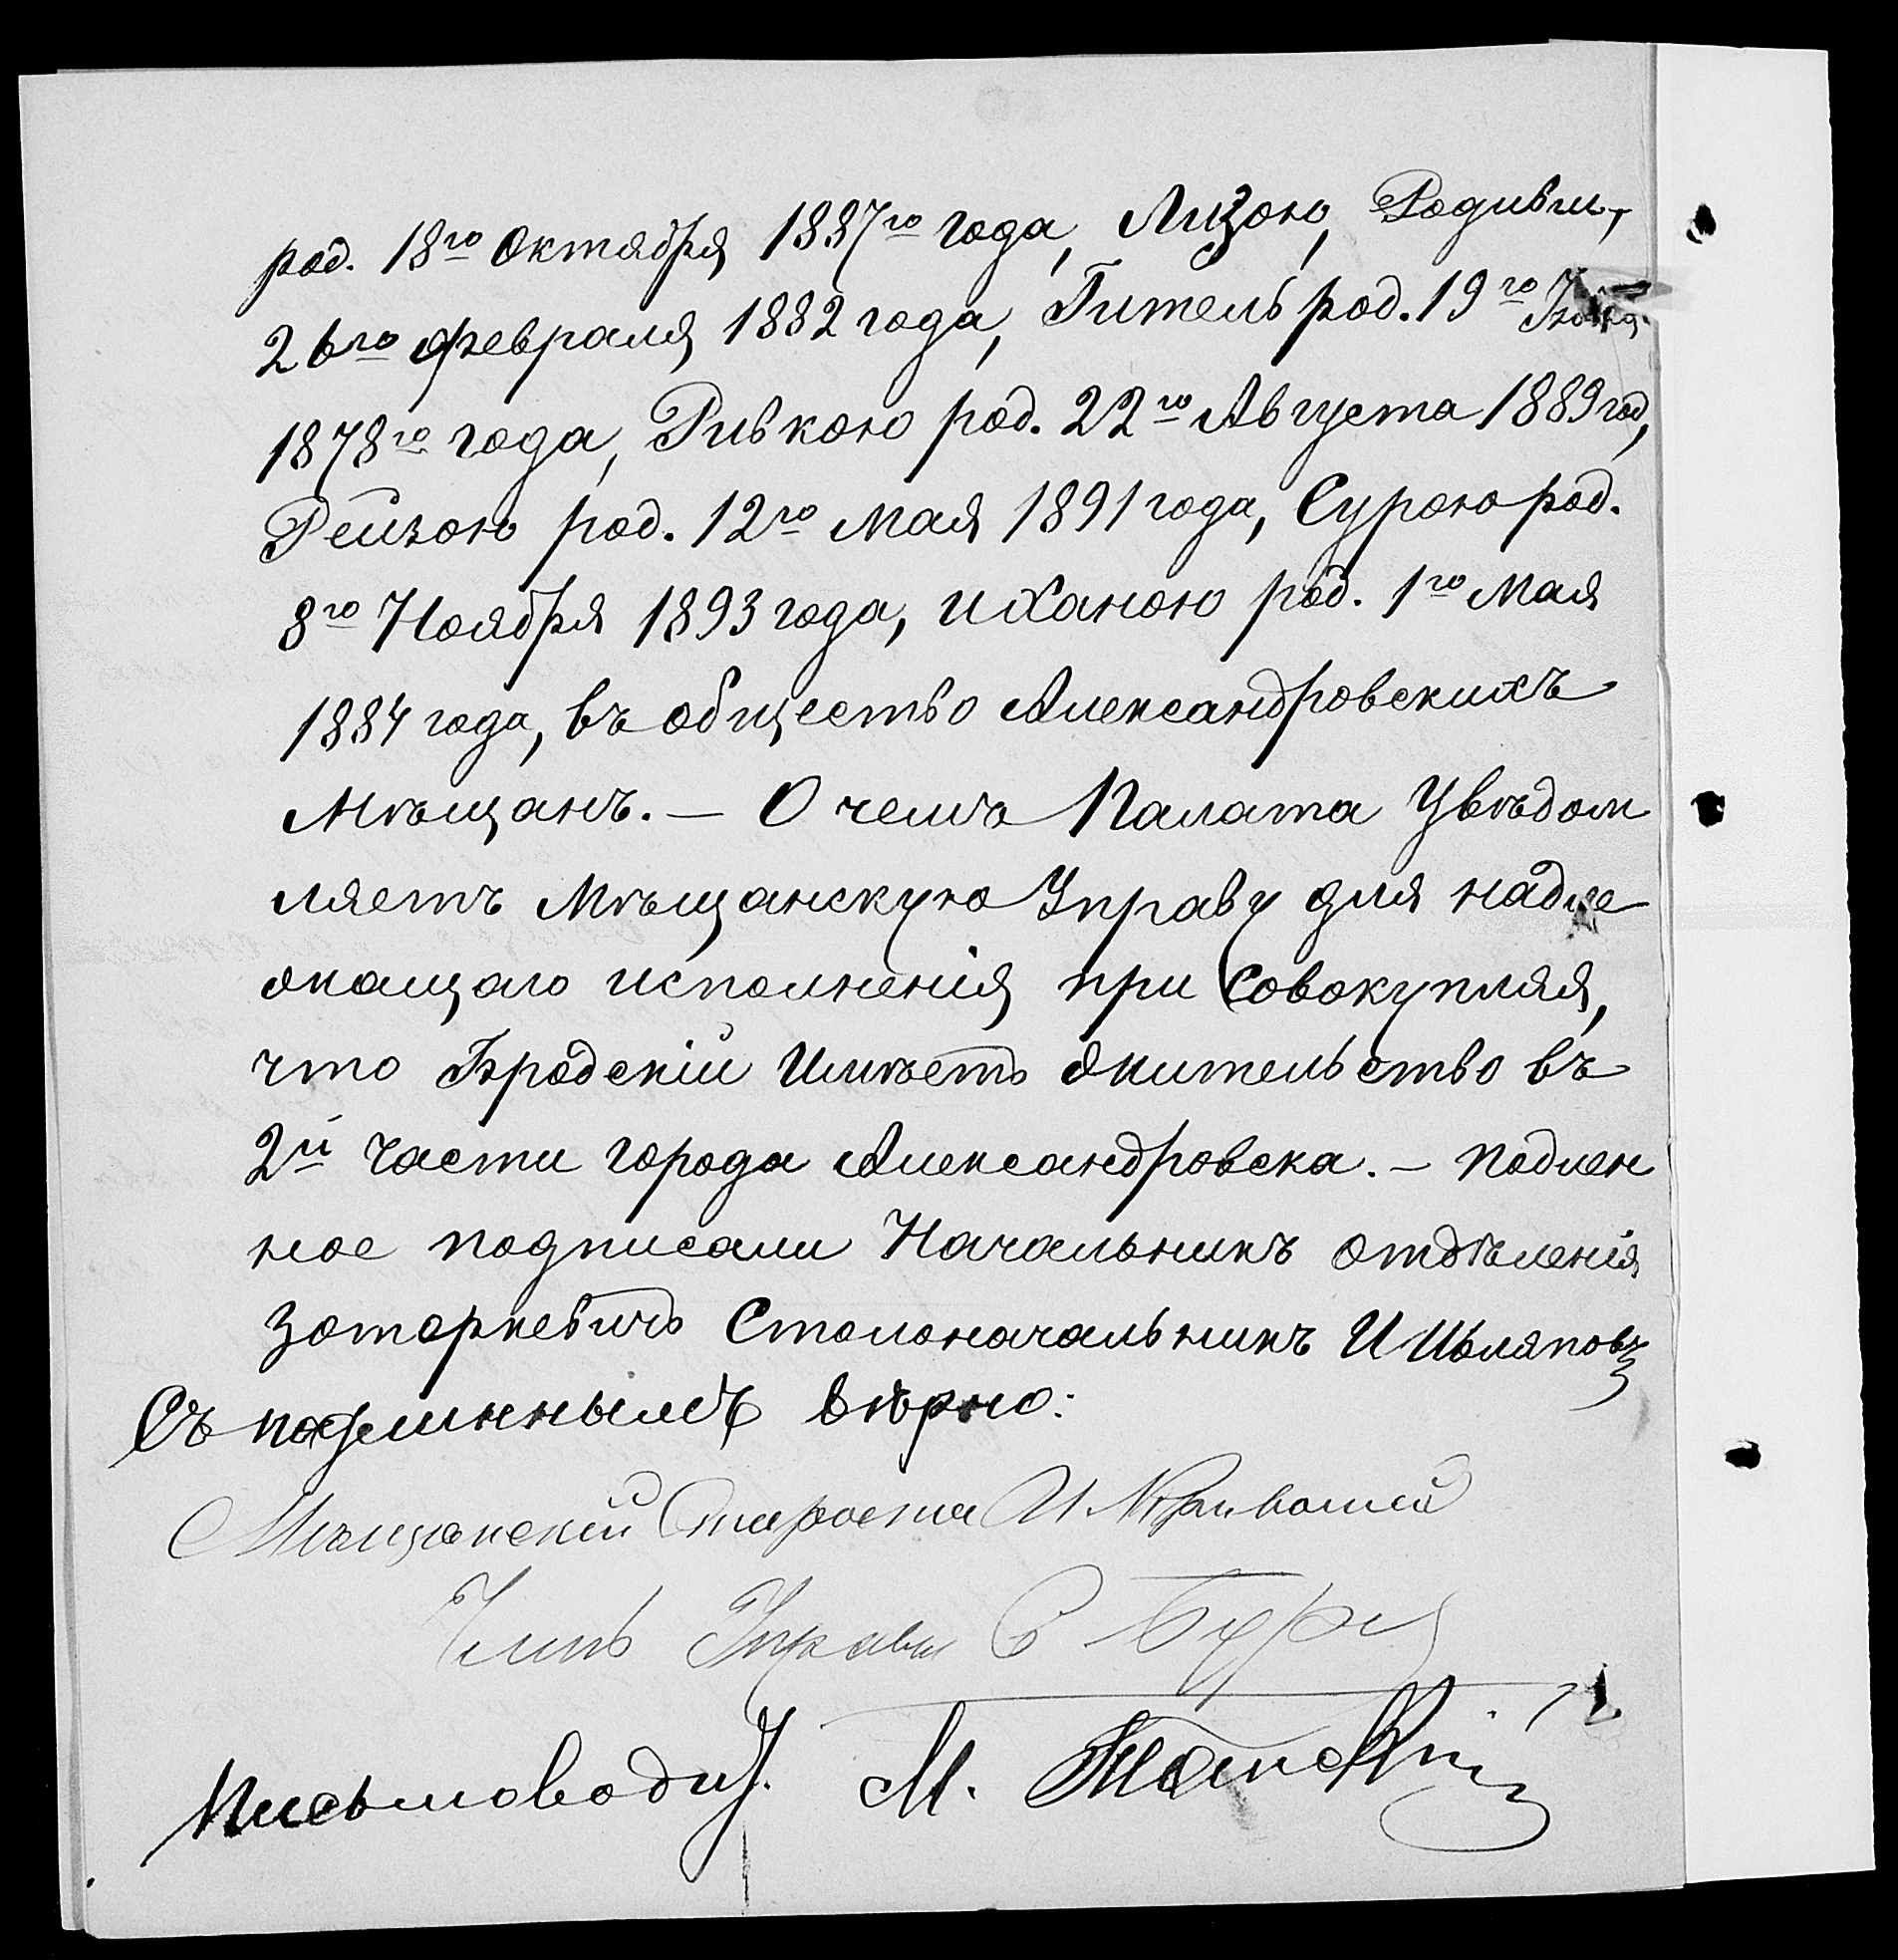 род. 18го Октября 1887го года, Лизою, Родивш,
26го февраля 1882 года, Гитель род. 19го
1878го года, Ривкою род. 22го Августа 1889 год,
Рейзою род. 12го Мая 1891 года, Сурою род.
8го Ноября 1893 года, и Ханою род. 1го Мая
1884 года, въ общество Александровскихъ
Мѣщанъ. — О чемъ Палата Увѣдом
ляетъ Мѣщанскую Управу для надле
жащаго исполненія при совокупляя,
что Бродскій Имѣетъ жительство въ
2й части города Александровска. — Подлен
ное подписали Начальникъ отдѣленія
Столоначальникъ
Съ подлиннымъ вѣрно:
Мѣщанскій Староста И
Членъ Управы С
Письмовод. М.